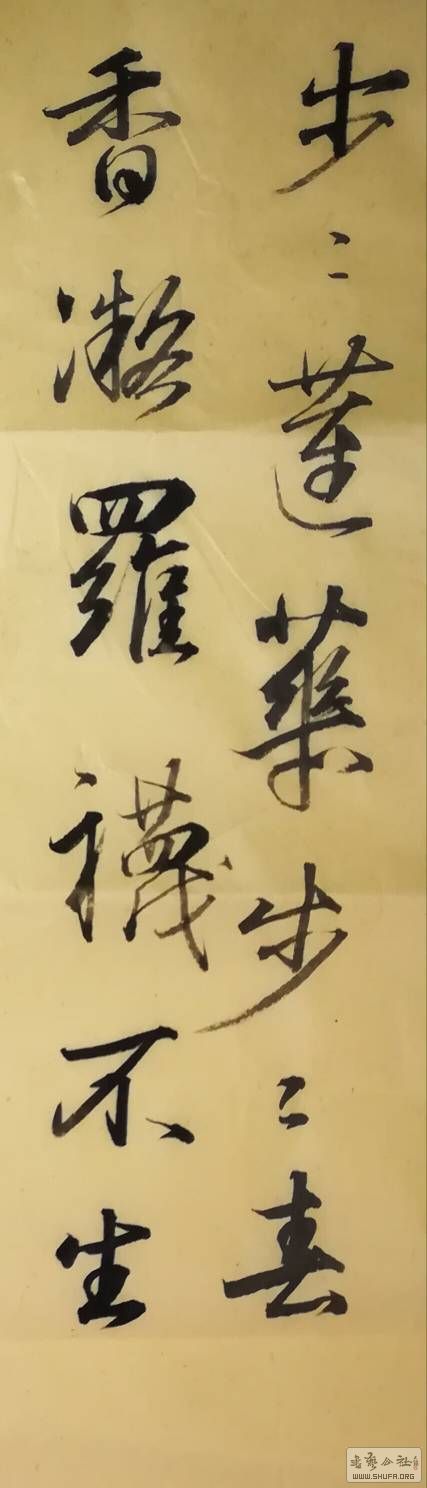 步〻蓮蕐步〻春
香凝羅襪不生
書藝公社
WWW.SHUFA.ORG